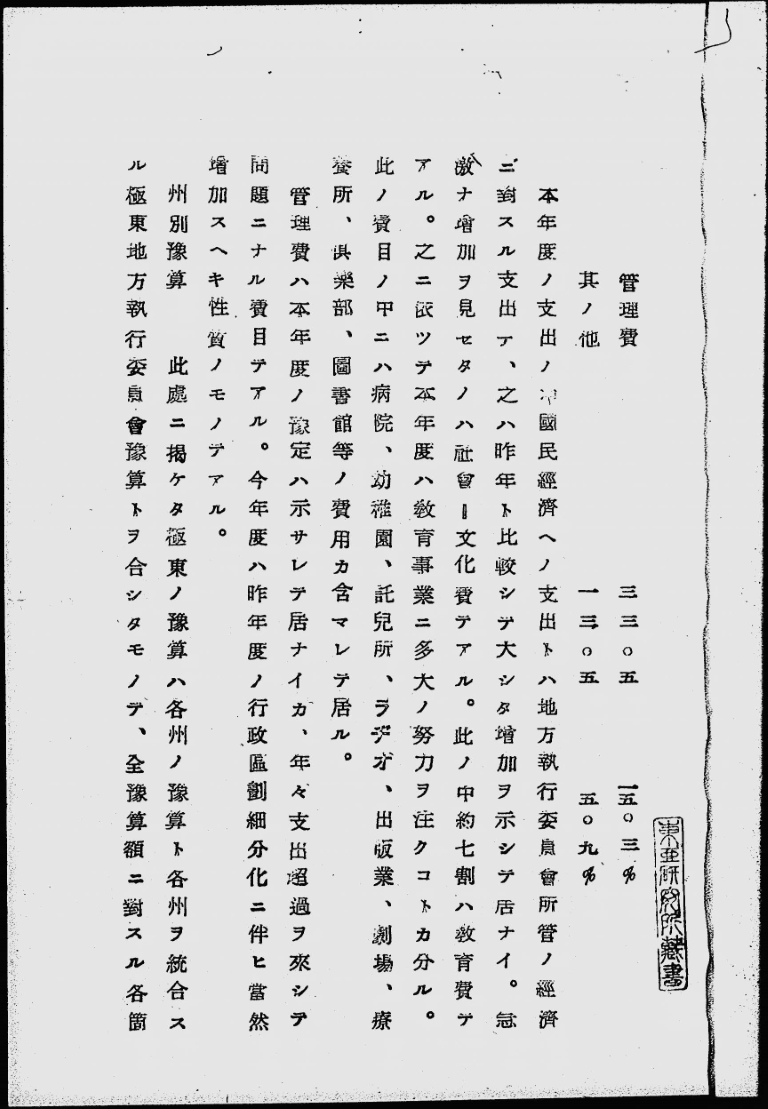 管理費 三三。五 一五。三%
其ノ他 一三。五 五。九%
本年度ノ支出ノ中國民經濟ヘノ支出トハ地方執行委員會所管ノ經濟
ニ對スル支出テ、之ハ昨年ト比較シテ大シタ增加ヲ示シテ居ナイ。急
激ナ增加ヲ見セタノハ社會ー文化費テアル。此ノ中約七割ハ敎育費テ
アル。之ニ依ツテ本年度ハ敎育事業ニ多大ノ努力ヲ注クコトカ分ル。
此ノ費目ノ中ニハ病院、幼稚園、託兒所、ラヂオ、出版業、劇場、療
養所、俱樂部、圖書館等ノ費用カ含マレテ居ル。
管理費ハ本年度ノ豫定ハ示サレテ居ナイカ、年々支出超過ヲ來シテ
問題ニナル費目テアル。今年度ハ昨年度ノ行政區劃細分化ニ伴ヒ當然
增加スヘキ性質ノモノテアル。
州別豫算 此處ニ揭ケタ極東ノ豫算ハ各州ノ豫算ト各州ヲ統合ス
ル極東地方執行委員會豫算トヲ合シタモノテ、全豫算額ニ對スル各箇
東亞研究所藏書